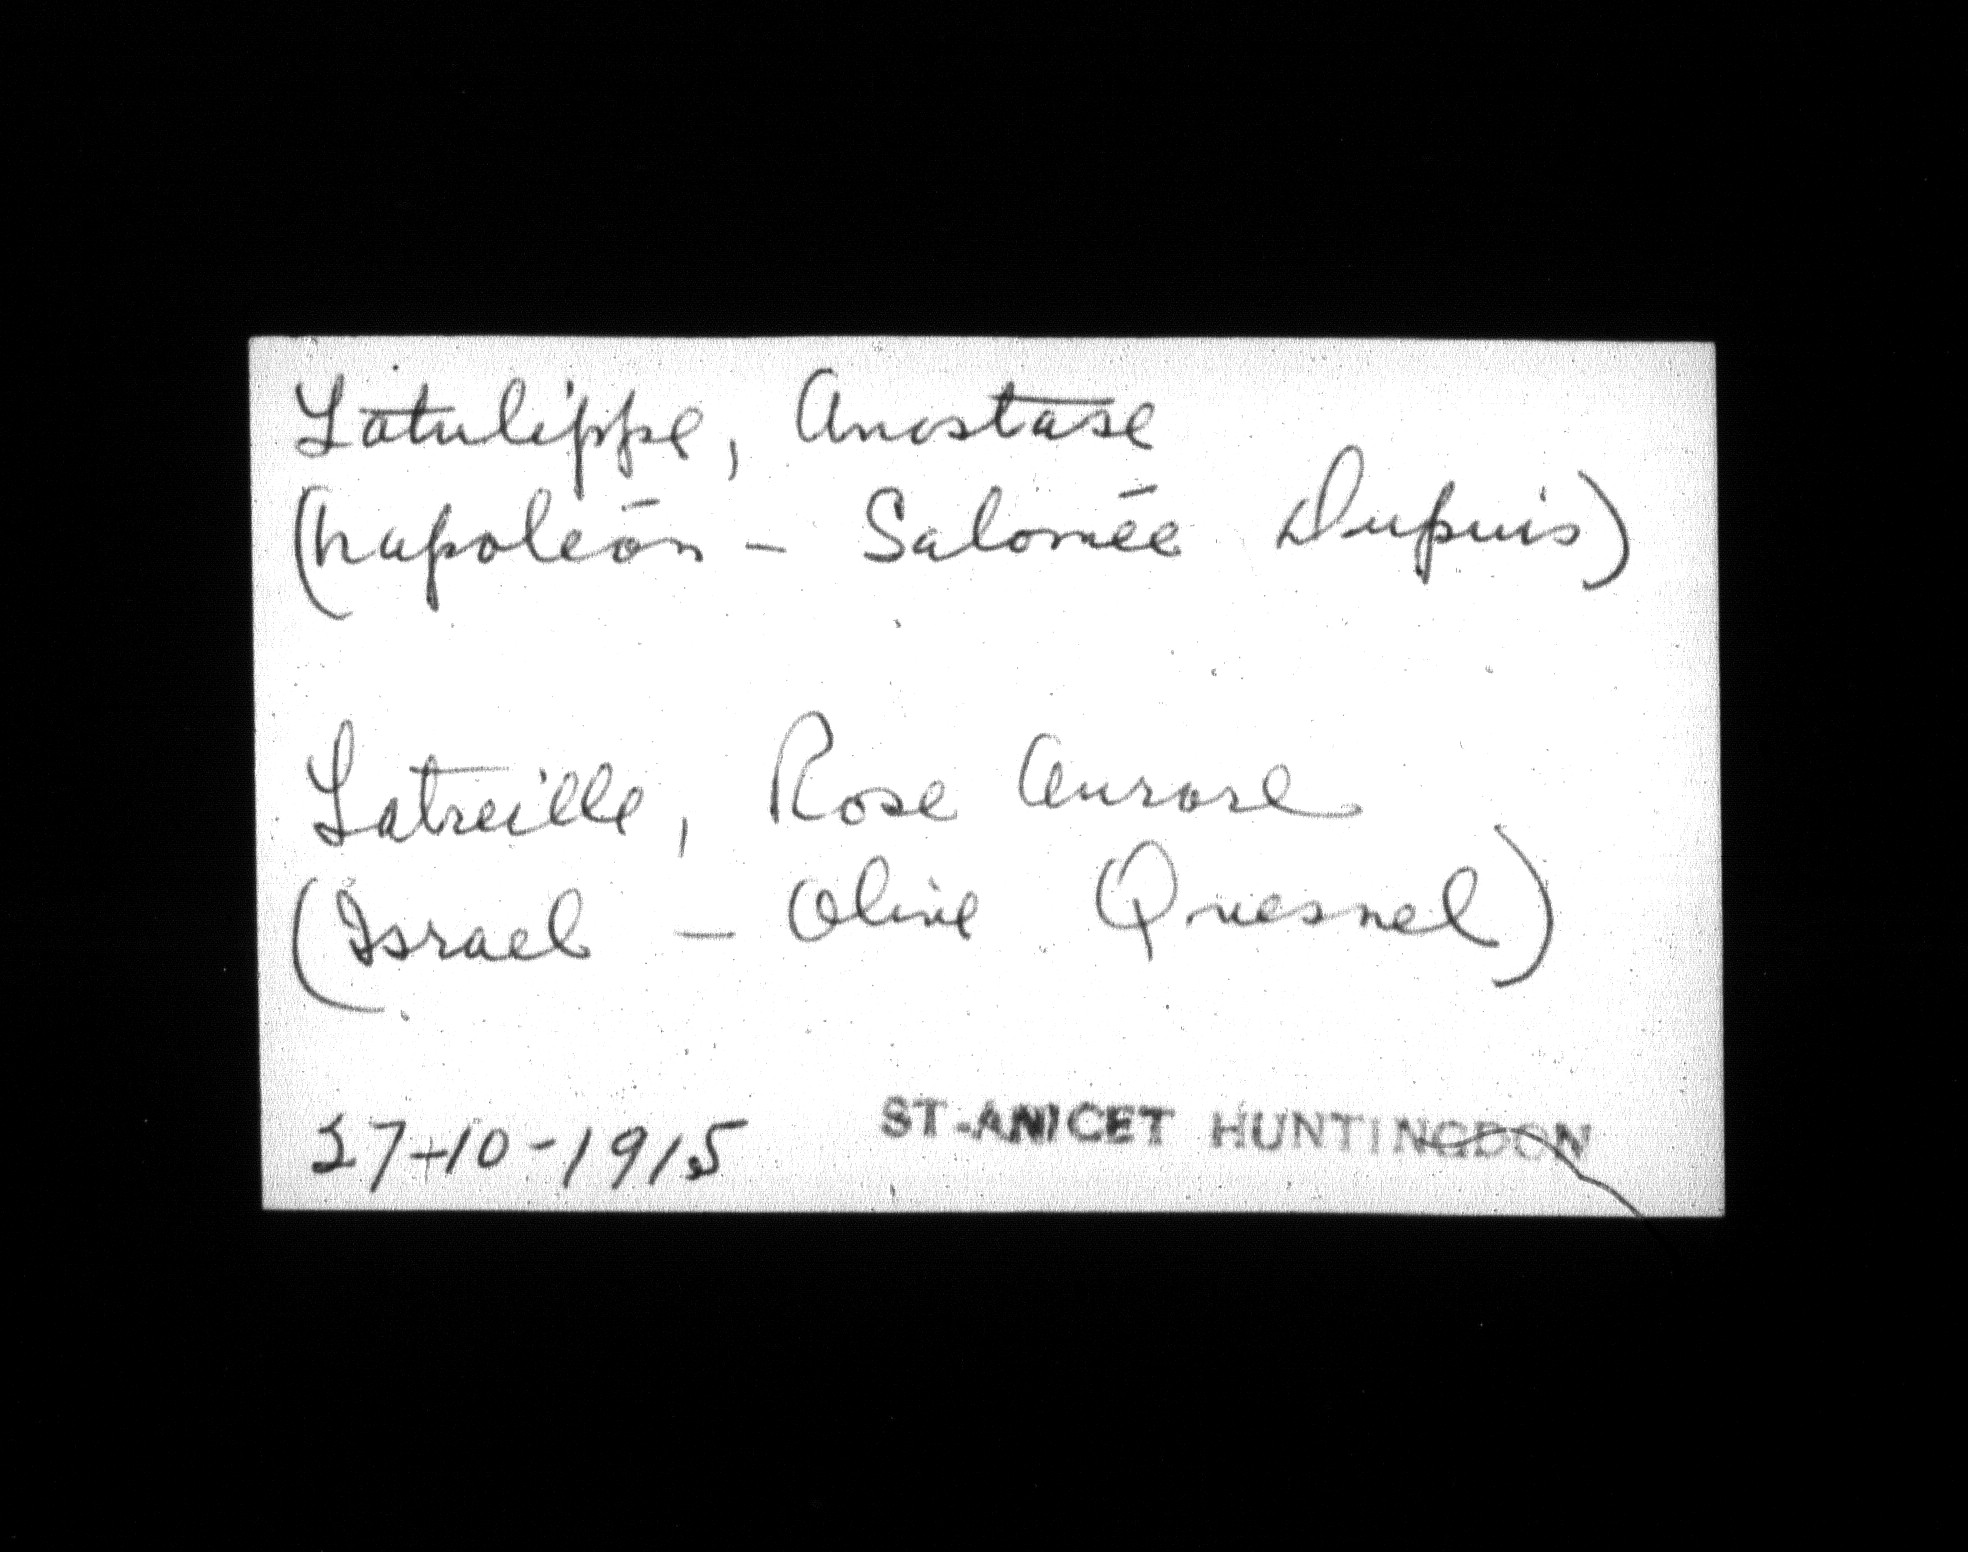 Latulippe, Anastase
(Napoléon - Salomée Dupuis)
Latreille, Rose Aurore
(Israel - Olive Quesnel)
27-10-1915 ST-ANICET HUNTINGDON